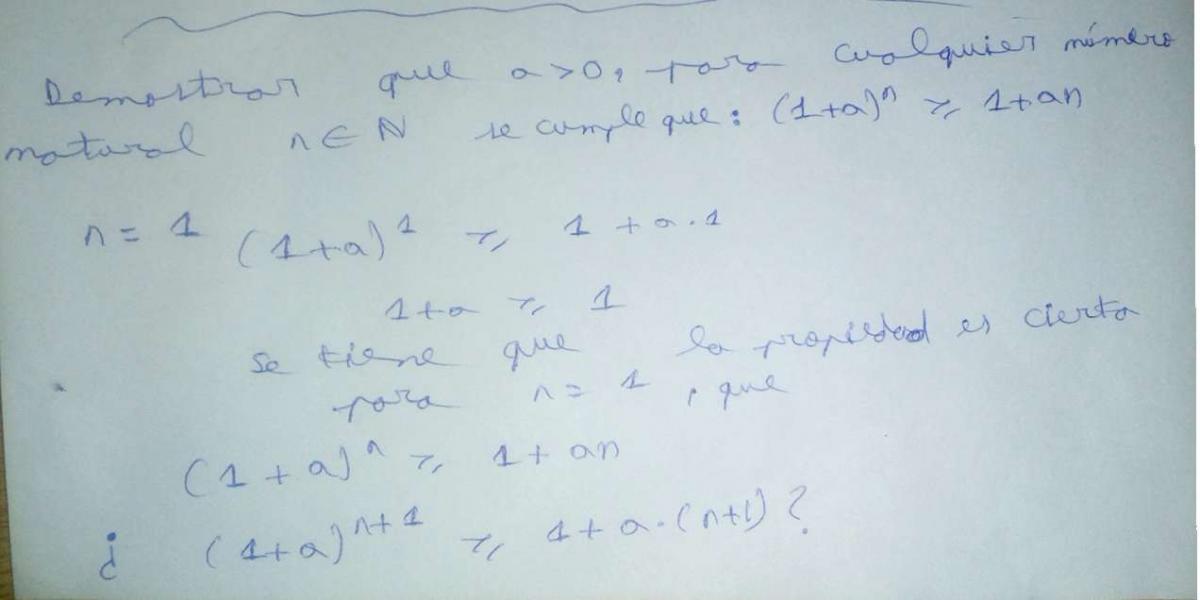 Demostrar que a>0, para cualquier número
natural n∈ℕ se cumple que: (1+a)ⁿ ≥ 1+an
n = 1 (1+a)¹ ≥ 1 + a·1
1+a ≥ 1
Se tiene que la propiedad es cierta
para n = 1, que
(1+a)ⁿ ≥ 1+an
¿ (1+a)ⁿ⁺¹ ≥ 1+a·(n+1)?